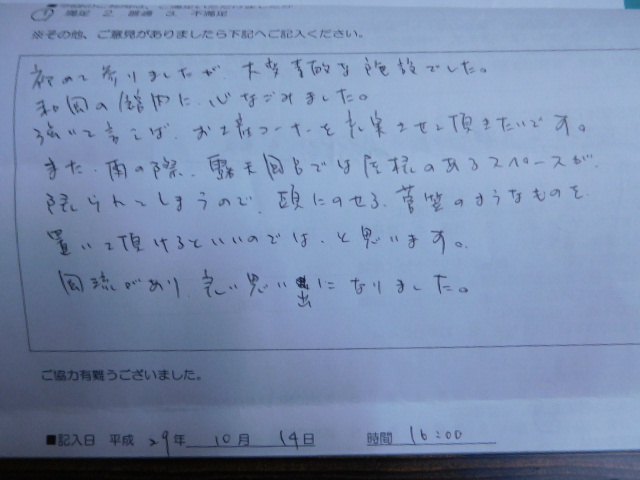 ① 満足 2. 普通 3. 不満足
※その他、ご意見がありましたら下記へご記入ください。
初めて参りましたが、大変素敵な施設でした。
和風の館内に、心なごみました。
強いて言えば、お土産コーナーを充実させて頂きたいです。
また、雨の際、露天風呂では屋根のあるスペースが
限られてしまうので、頭にのせる、菅笠のようなものを
置いて頂けるといいのでは、と思います。
風流があり、良い思い出になりました。
ご協力有難うございました。
■記入日 平成 29年 10月 14日 時間 16:00